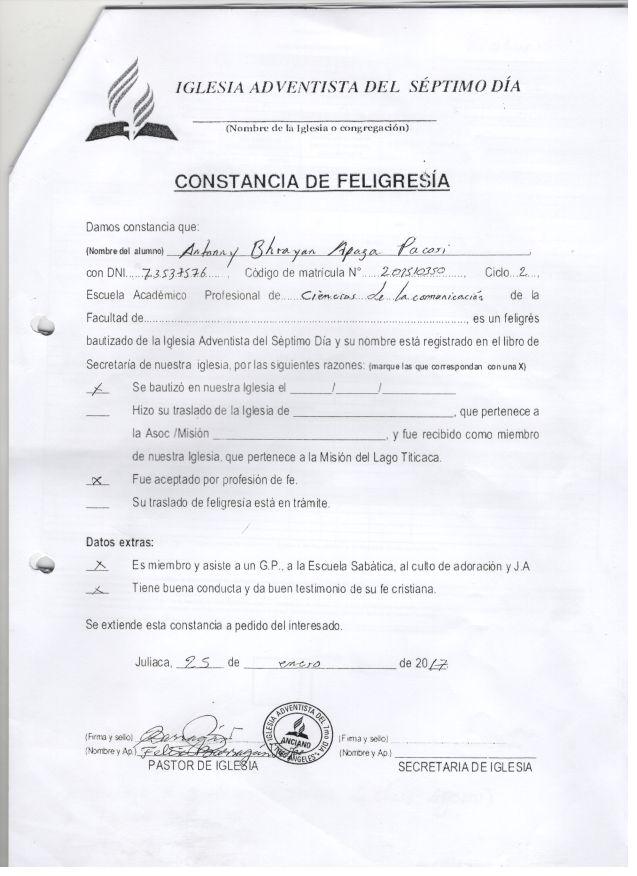 IGLESIA ADVENTISTA DEL SÉPTIMO DÍA
(Nombre de la Iglesia o congregación)
CONSTANCIA DE FELIGRESÍA
Damos constancia que:
(Nombre del alumno) Antonny Bhrayan Apaza Pacori
con DNI.....73537576......, Código de matrícula N°.....201510350......, Ciclo..2...,
Escuela Académico Profesional de.....Ciencias de la comunicación de la
Facultad de................................................................, es un feligrés
bautizado de la Iglesia Adventista del Séptimo Día y su nombre está registrado en el libro de
Secretaría de nuestra iglesia, por las siguientes razones: (marque las que correspondan con una X)
X Se bautizó en nuestra Iglesia el ______/______/__________
____ Hizo su traslado de la Iglesia de ______________________, que pertenece a
la Asoc /Misión ________________________, y fue recibido como miembro
de nuestra Iglesia, que pertenece a la Misión del Lago Titicaca.
X Fue aceptado por profesión de fe.
____ Su traslado de feligresía está en trámite.
Datos extras:
X Es miembro y asiste a un G.P., a la Escuela Sabática, al culto de adoración y J.A
X Tiene buena conducta y da buen testimonio de su fe cristiana.
Se extiende esta constancia a pedido del interesado.
Juliaca, 25 de enero de 2017
IGLESIA ADVENTISTA DEL 7mo DIA
ANCIANO
ANGELES
(Firma y sello) (Firma y sello)
(Nombre y Ap.) (Nombre y Ap.)
PASTOR DE IGLESIA SECRETARIA DE IGLESIA